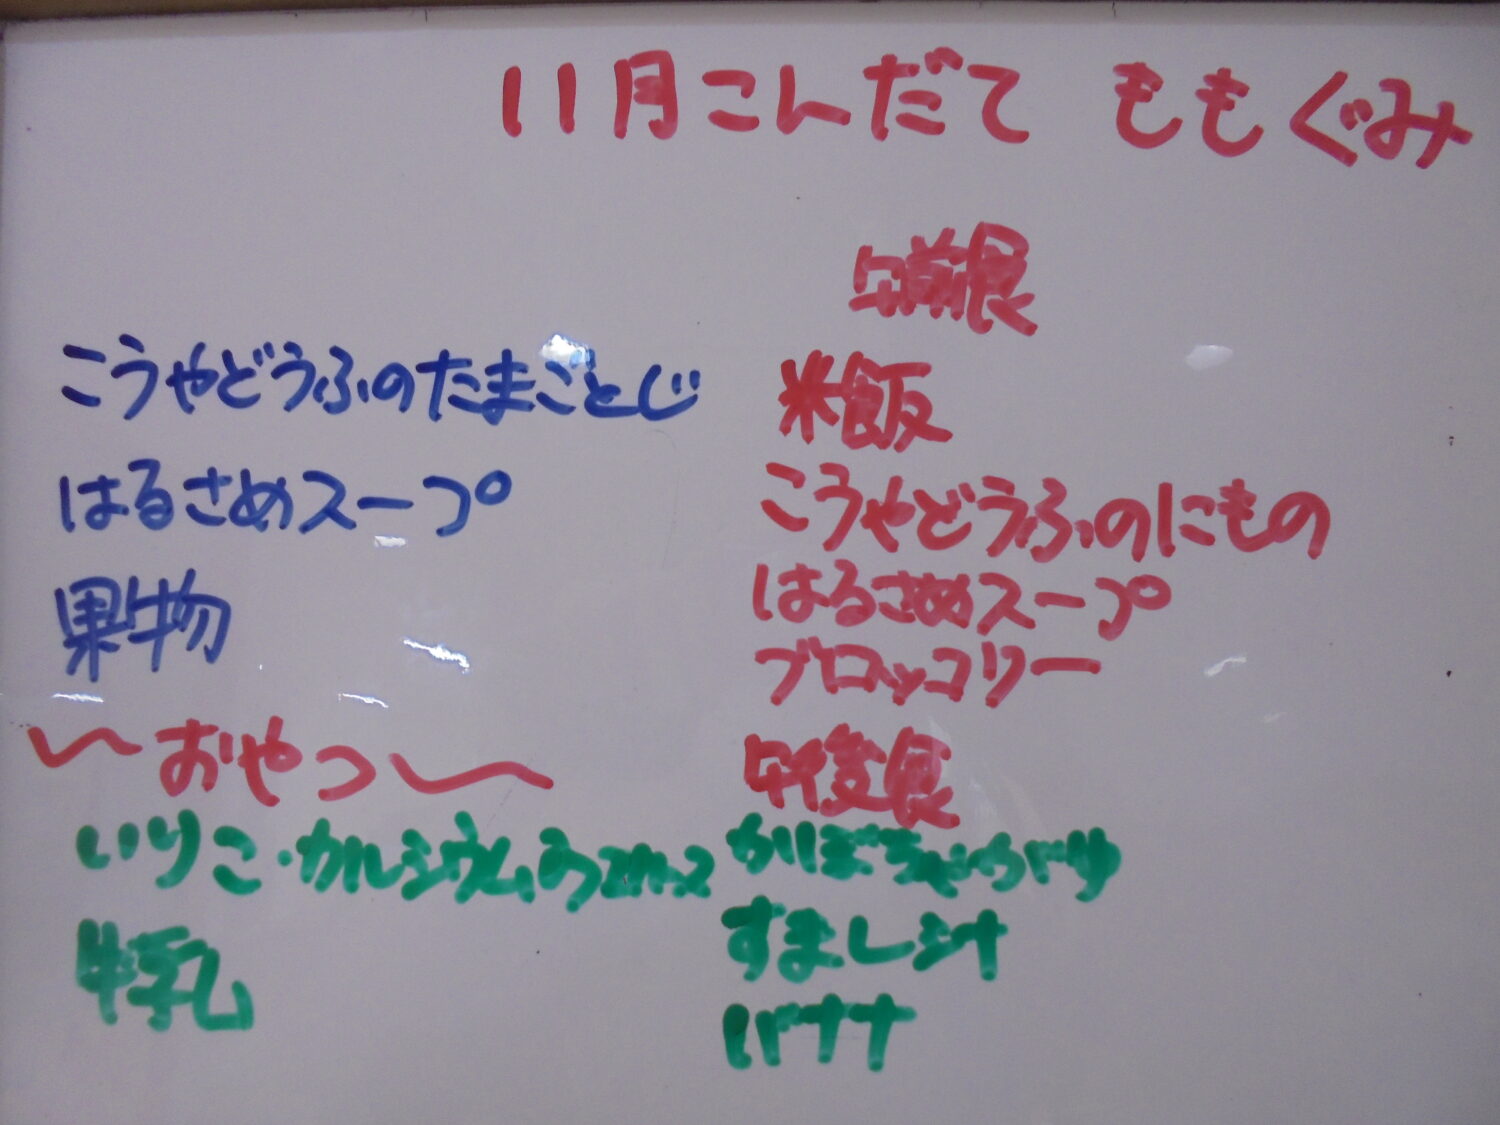 11月こんだて ももぐみ
こうやどうふのたまごとじ
はるさめスープ
果物
〜おやつ〜
いりこ・カルシウム
牛乳
午前食
米飯
こうやどうふのにもの
はるさめスープ
ブロッコリー
午後食
かぼちゃ
すまし汁
バナナ